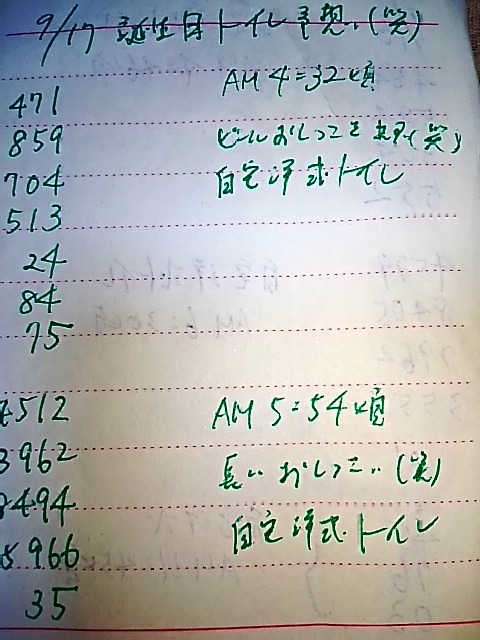 9/17 誕生日トイレ予想。(笑)
AM 4=32頃
471
859
ビールおしっこを
(笑)
704
自宅洋式トイレ
513
24
84
75
512
AM 5=54頃
3962
長いおしっこい(笑)
494
自宅洋式トイレ
966
35